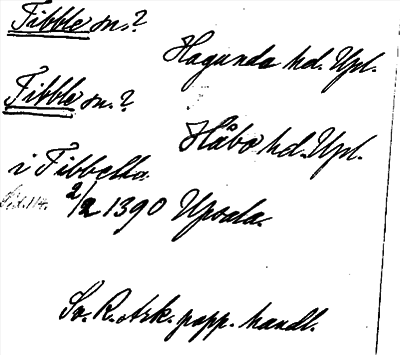 Fibble sn.?
Hagunda hd. Upl.
Fibble sn.?
Håbo hd. Upl.
i Fibbella
2/2 1390 Upsala.
Sv. R. Ark. papp. handl.